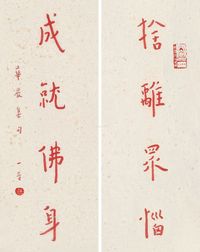 捨離眾惱
成就佛身
華嚴集句 一音